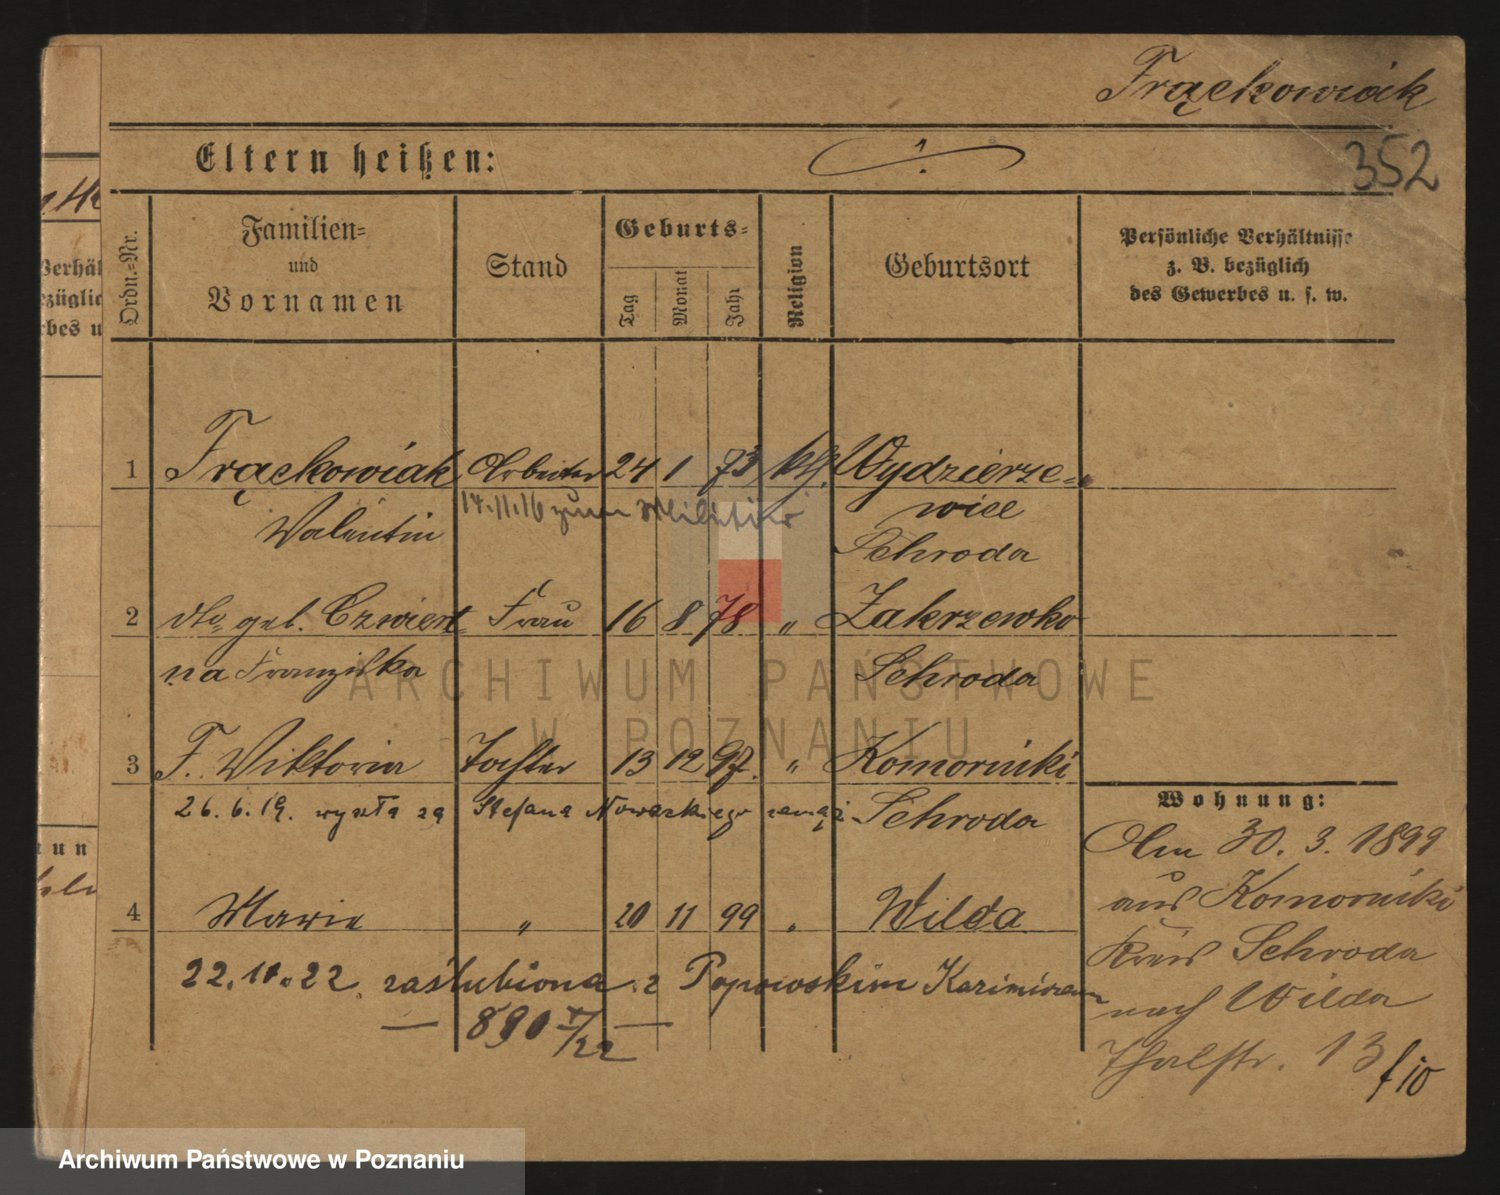 Frąckowiak
352
Eltern heißen:
Ordn.=Nr.
Familien=
und
Vornamen
Stand
Geburts=
Tag
Monat
Jahr
Religion
Geburtsort
Persönliche Verhältnisse
z. B. bezüglich
des Gewerbes u. s. w.
1 Frąckowiak Arbeiter 24 1 73 kth. Wydzierze=
14.11.16 zum Militär
Valentin wice
Schroda
2 geb. Czwiert= Frau 16 8 78 " Zakrzewko
na Franziska Schroda
3 F. Viktoria Tochter 13 12 97. " Komorniki
26.6.19. wyszła za Stefana Nowackiego zamąż Schroda
4 Marie " 20 11 99 " Wilda
22.11.22 zaślubiona z Popowskim Kazimirzem
— 890 V/22 —
Wohnung:
Am 30. 3. 1899
aus Komorniki
Kreis Schroda
nach Wilda
Thalstr. 13
ARCHIWUM PAŃSTWOWE
W POZNANIU
Archiwum Państwowe w Poznaniu